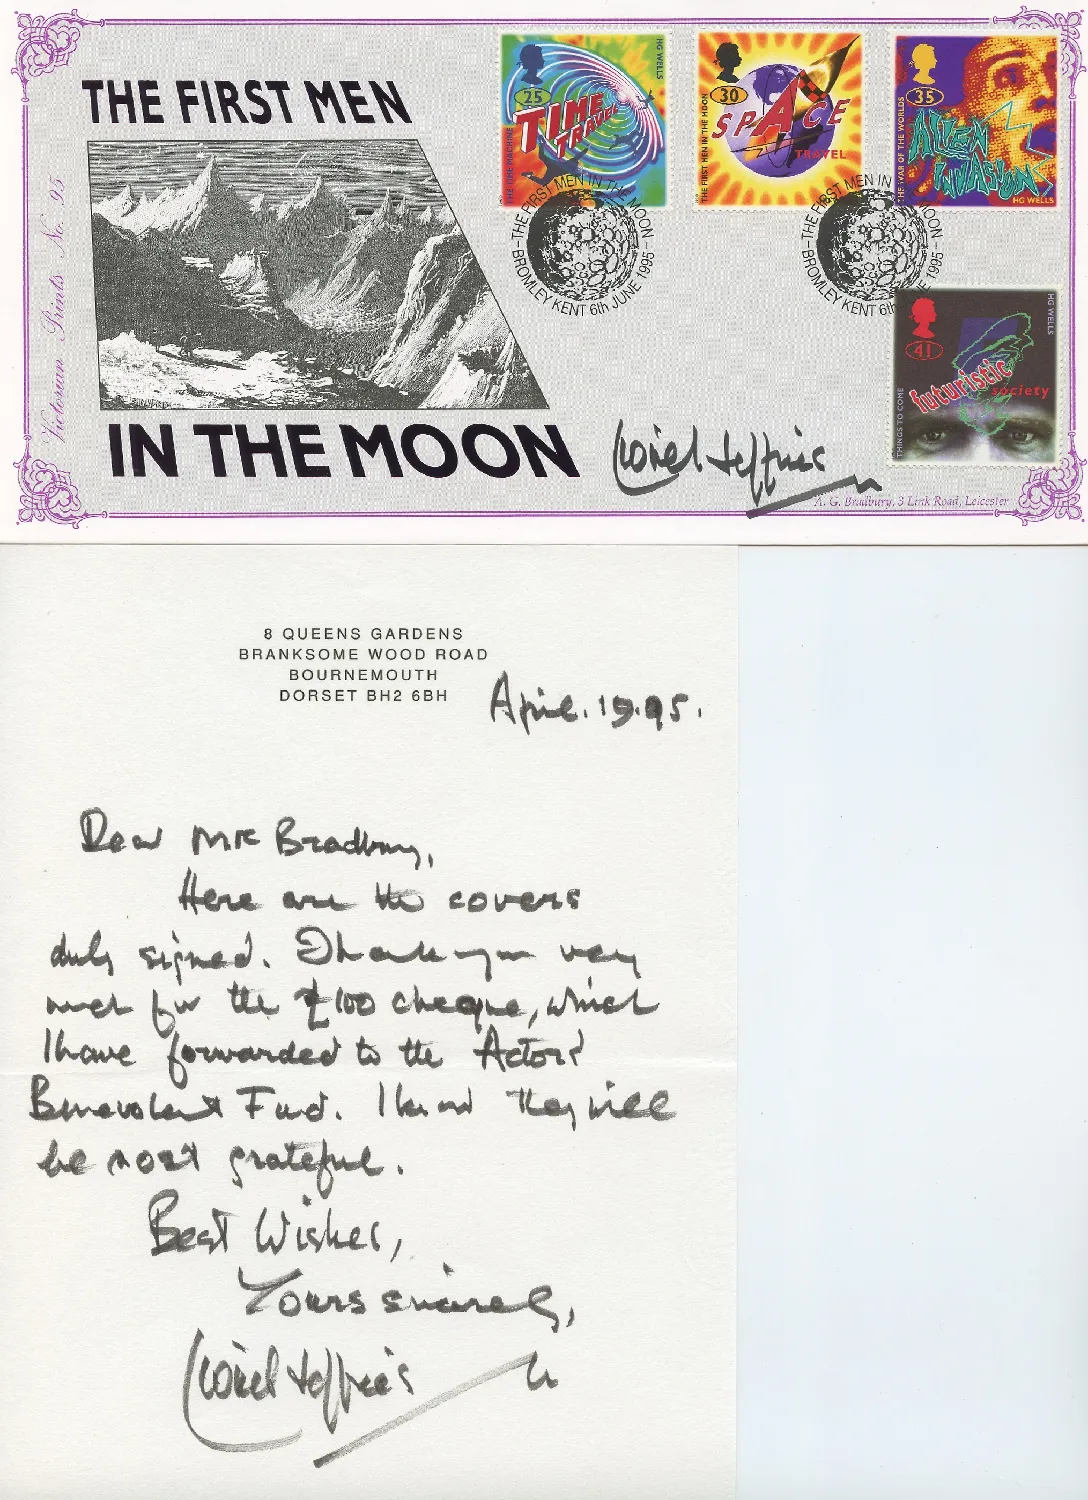 THE FIRST MEN
IN THE MOON
Victorian Prints No. 95
25
TIME
TRAVEL
THE TIME MACHINE
HG WELLS
30
SPACE
TRAVEL
THE FIRST MEN IN THE MOON
35
ALIEN
INVASION
THE WAR OF THE WORLDS
HG WELLS
THE FIRST MEN IN THE MOON
BROMLEY KENT 6th JUNE 1995
THE FIRST MEN IN MOON
BROMLEY KENT 6th 1995
41
futuristic
society
THINGS TO COME
HG WELLS
Lionel Jeffries
A. G. Bradbury, 3 Link Road, Leicester
8 QUEENS GARDENS
BRANKSOME WOOD ROAD
BOURNEMOUTH
DORSET BH2 6BH
April. 19. 95.
Dear Mr Bradbury,
Here are the covers
duly signed. Thank you very
much for the £100 cheque, which
I have forwarded to the Actors'
Benevolent Fund. I know they will
be most grateful.
Best Wishes,
Yours sincerely,
Lionel Jeffries